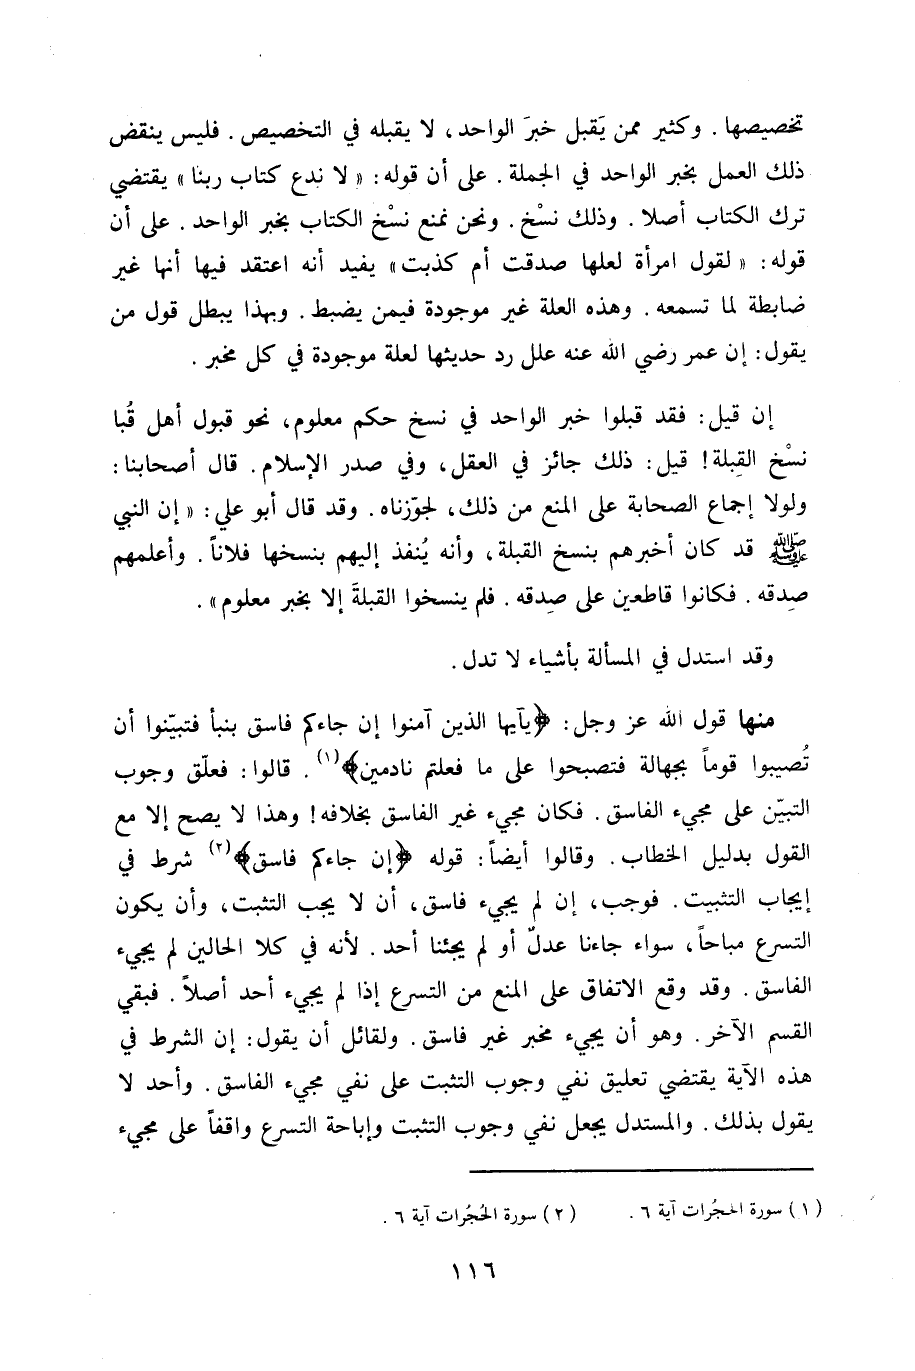 تخصيصها . وكثير ممن يَقبل خبرَ الواحد، لا يقبله في التخصيص . فليس ينقض
ذلك العمل بخبر الواحد في الجملة . على أن قوله: « لا ندع كتاب ربنا » يقتضي
ترك الكتاب أصلا . وذلك نسْخ . ونحن نمنع نسْخ الكتاب بخبر الواحد . على أن
قوله: « لقول امرأة لعلها صدقت أم كذبت » يفيد أنه اعتقد فيها أنها غير
ضابطة لما تسمعه . وهذه العلة غير موجودة فيمن يضبط . وبهذا يبطل قول من
يقول: إن عمر رضي الله عنه علل رد حديثها لعلة موجودة في كل مخبر .
إن قيل: فقد قبلوا خبر الواحد في نسخ حكم معلوم، نحو قبول أهل قُبا
نسْخ القِبلة! قيل: ذلك جائز في العقل، وفي صدر الإسلام. قال أصحابنا:
ولولا إجماع الصحابة على المنع من ذلك، لجوّزناه. وقد قال أبو علي: « إن النبي
ﷺ قد كان أخبرهم بنسخ القبلة، وأنه يُنفذ إليهم بنسخها فلاناً . وأعلمهم
صِدقه . فكانوا قاطعين على صِدقه . فلم ينسخوا القبلةَ إلا بخبر معلوم ».
وقد استدل في المسألة بأشياء لا تدل.
منها قول الله عز وجل: ﴿يآيها الذين آمنوا إن جاءكم فاسق بنبأ فتبيّنوا أن
تُصيبوا قوماً بجهالة فتصبحوا على ما فعلتم نادمين﴾(١) . قالوا: فعلّق وجوب
التبيّن على مجيء الفاسق . فكان مجيء غير الفاسق بخلافه! وهذا لا يصح إلا مع
القول بدليل الخطاب. وقالوا أيضاً: قوله ﴿إن جاءكم فاسق﴾(٢) شرط في
إيجاب التثبيت. فوجب، إن لم يجيء فاسق، أن لا يجب التثبت، وأن يكون
التسرع مباحاً، سواء جاءنا عدلٌ أو لم يجئنا أحد . لأنه في كلا الحالين لم يجيء
الفاسق. وقد وقع الاتفاق على المنع من التسرع إذا لم يجيء أحد أصلاً . فبقي
القسم الآخر. وهو أن يجيء مخبر غير فاسق. ولقائل أن يقول: إن الشرط في
هذه الآية يقتضي تعليق نفي وجوب التثبت على نفي مجيء الفاسق. وأحد لا
يقول بذلك. والمستدل يجعل نفي وجوب التثبت وإباحة التسرع واقفاً على مجيء
(١) سورة الحجُرات آية ٦. (٢) سورة الحُجُرات آية ٦.
١١٦